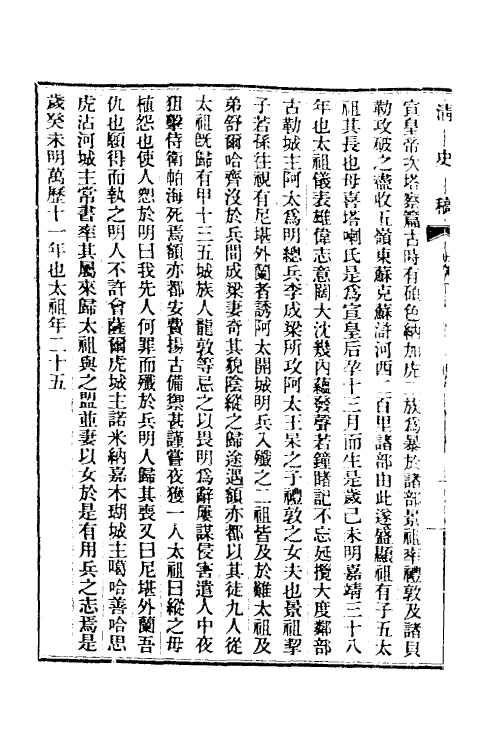 清史稿
宣皇帝次塔察篇古時有碩色納加虎二族爲暴於諸部景祖率禮敦及諸貝
勒攻破之盡收五嶺東蘇克蘇滸河西二百里諸部由此遂盛顯祖有子五太
祖其長也母喜塔喇氏是爲宣皇后孕十三月而生是歲己未明嘉靖三十八
年也太祖儀表雄偉志意闊大沈幾內蘊發聲若鐘睹記不忘延攬大度鄰部
古勒城主阿太爲明總兵李成梁所攻阿太王杲之子禮敦之女夫也景祖挈
子若孫往視有尼堪外蘭者誘阿太開城明兵入殲之二祖皆及於難太祖及
弟舒爾哈齊沒於兵間成梁妻奇其貌陰縱之歸途遇額亦都以其徒九人從
太祖既歸有甲十三五城族人龍敦等忌之以畏明爲辭屢謀侵害遣人中夜
狙擊侍衛帕海死焉額亦都安費揚古備禦甚謹嘗夜獲一人太祖曰縱之毋
植怨也使人愬於明曰我先人何罪而殲於兵明人歸其喪又曰尼堪外蘭吾
仇也願得而執之明人不許會薩爾虎城主諾米納嘉木瑚城主噶哈善哈思
虎沾河城主常書率其屬來歸太祖與之盟並妻以女於是有用兵之志焉是
歲癸未明萬歷十一年也太祖年二十五